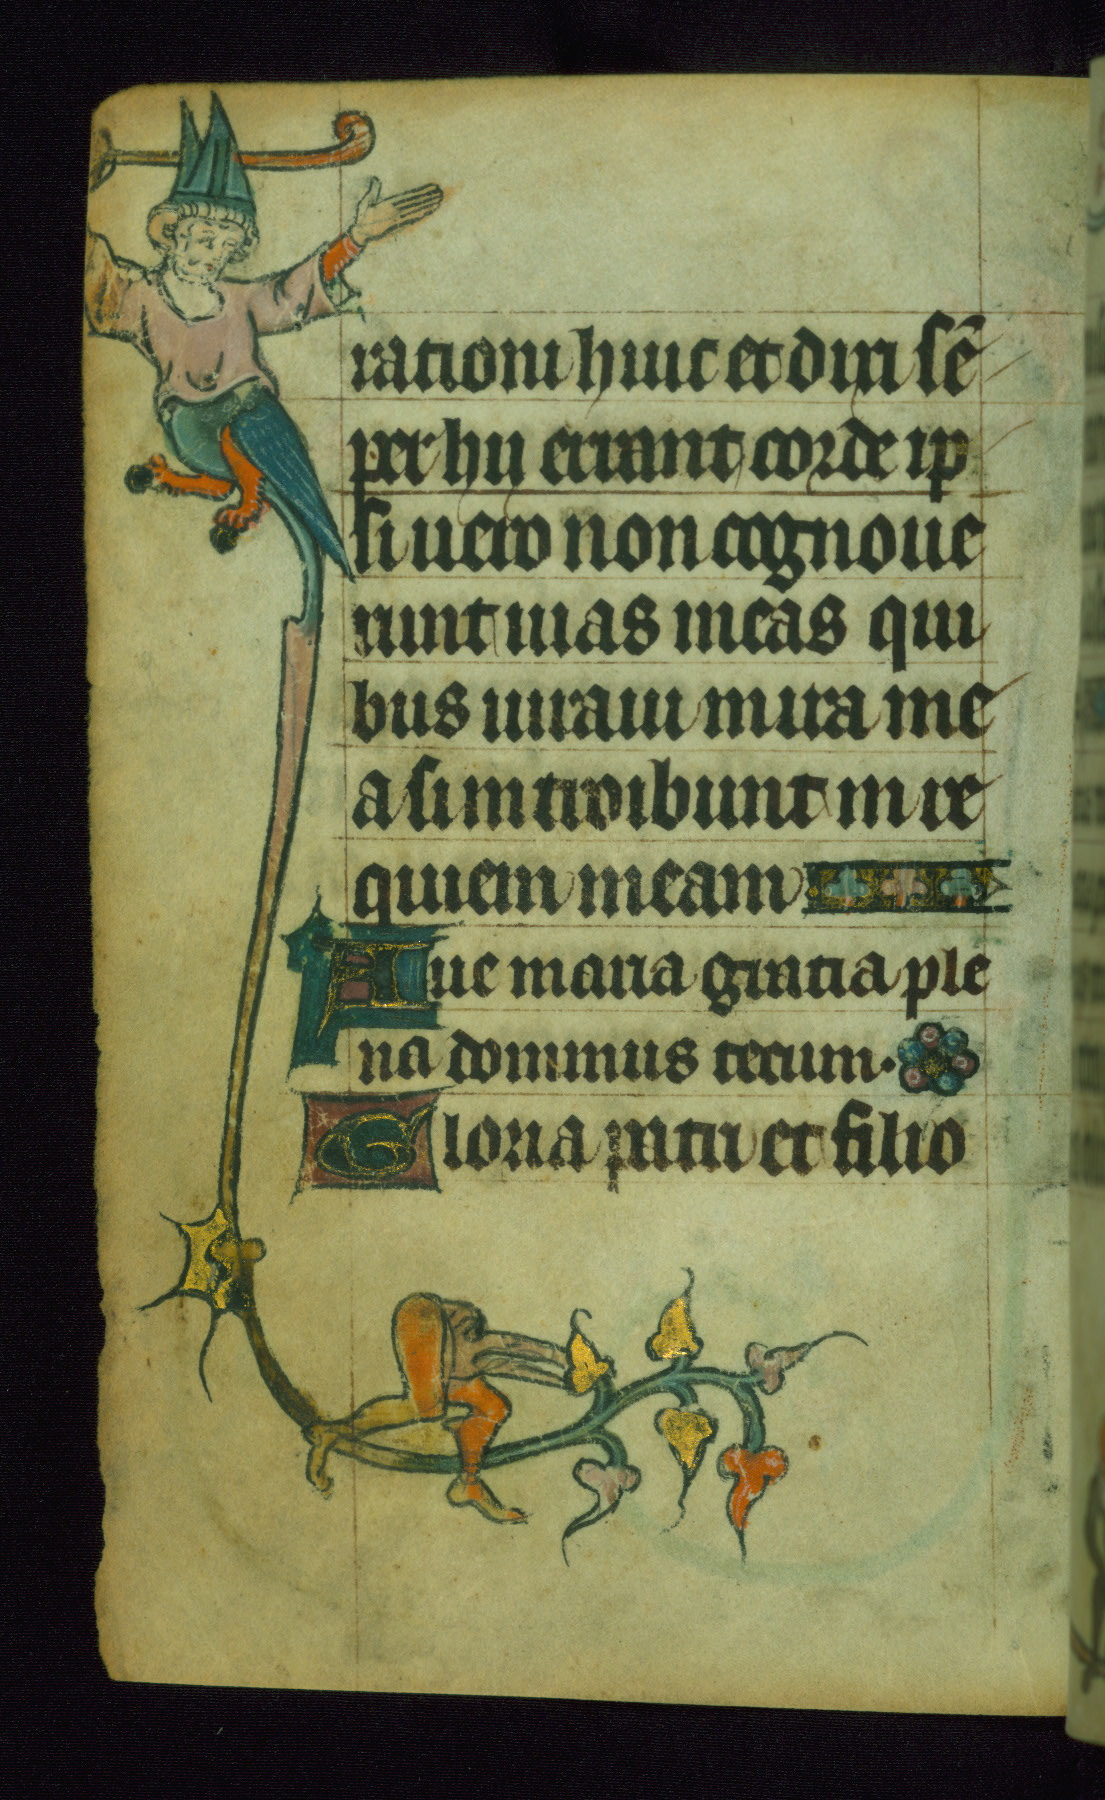 rationi huic et dixi sē
per hii errant corde ip
si uero non cognoue
runt uias meas qui
bus iuraui in ira me
a si introibunt in re
quiem meam
Aue maria gratia ple
na dominus tecum.
Gloria patri et filio